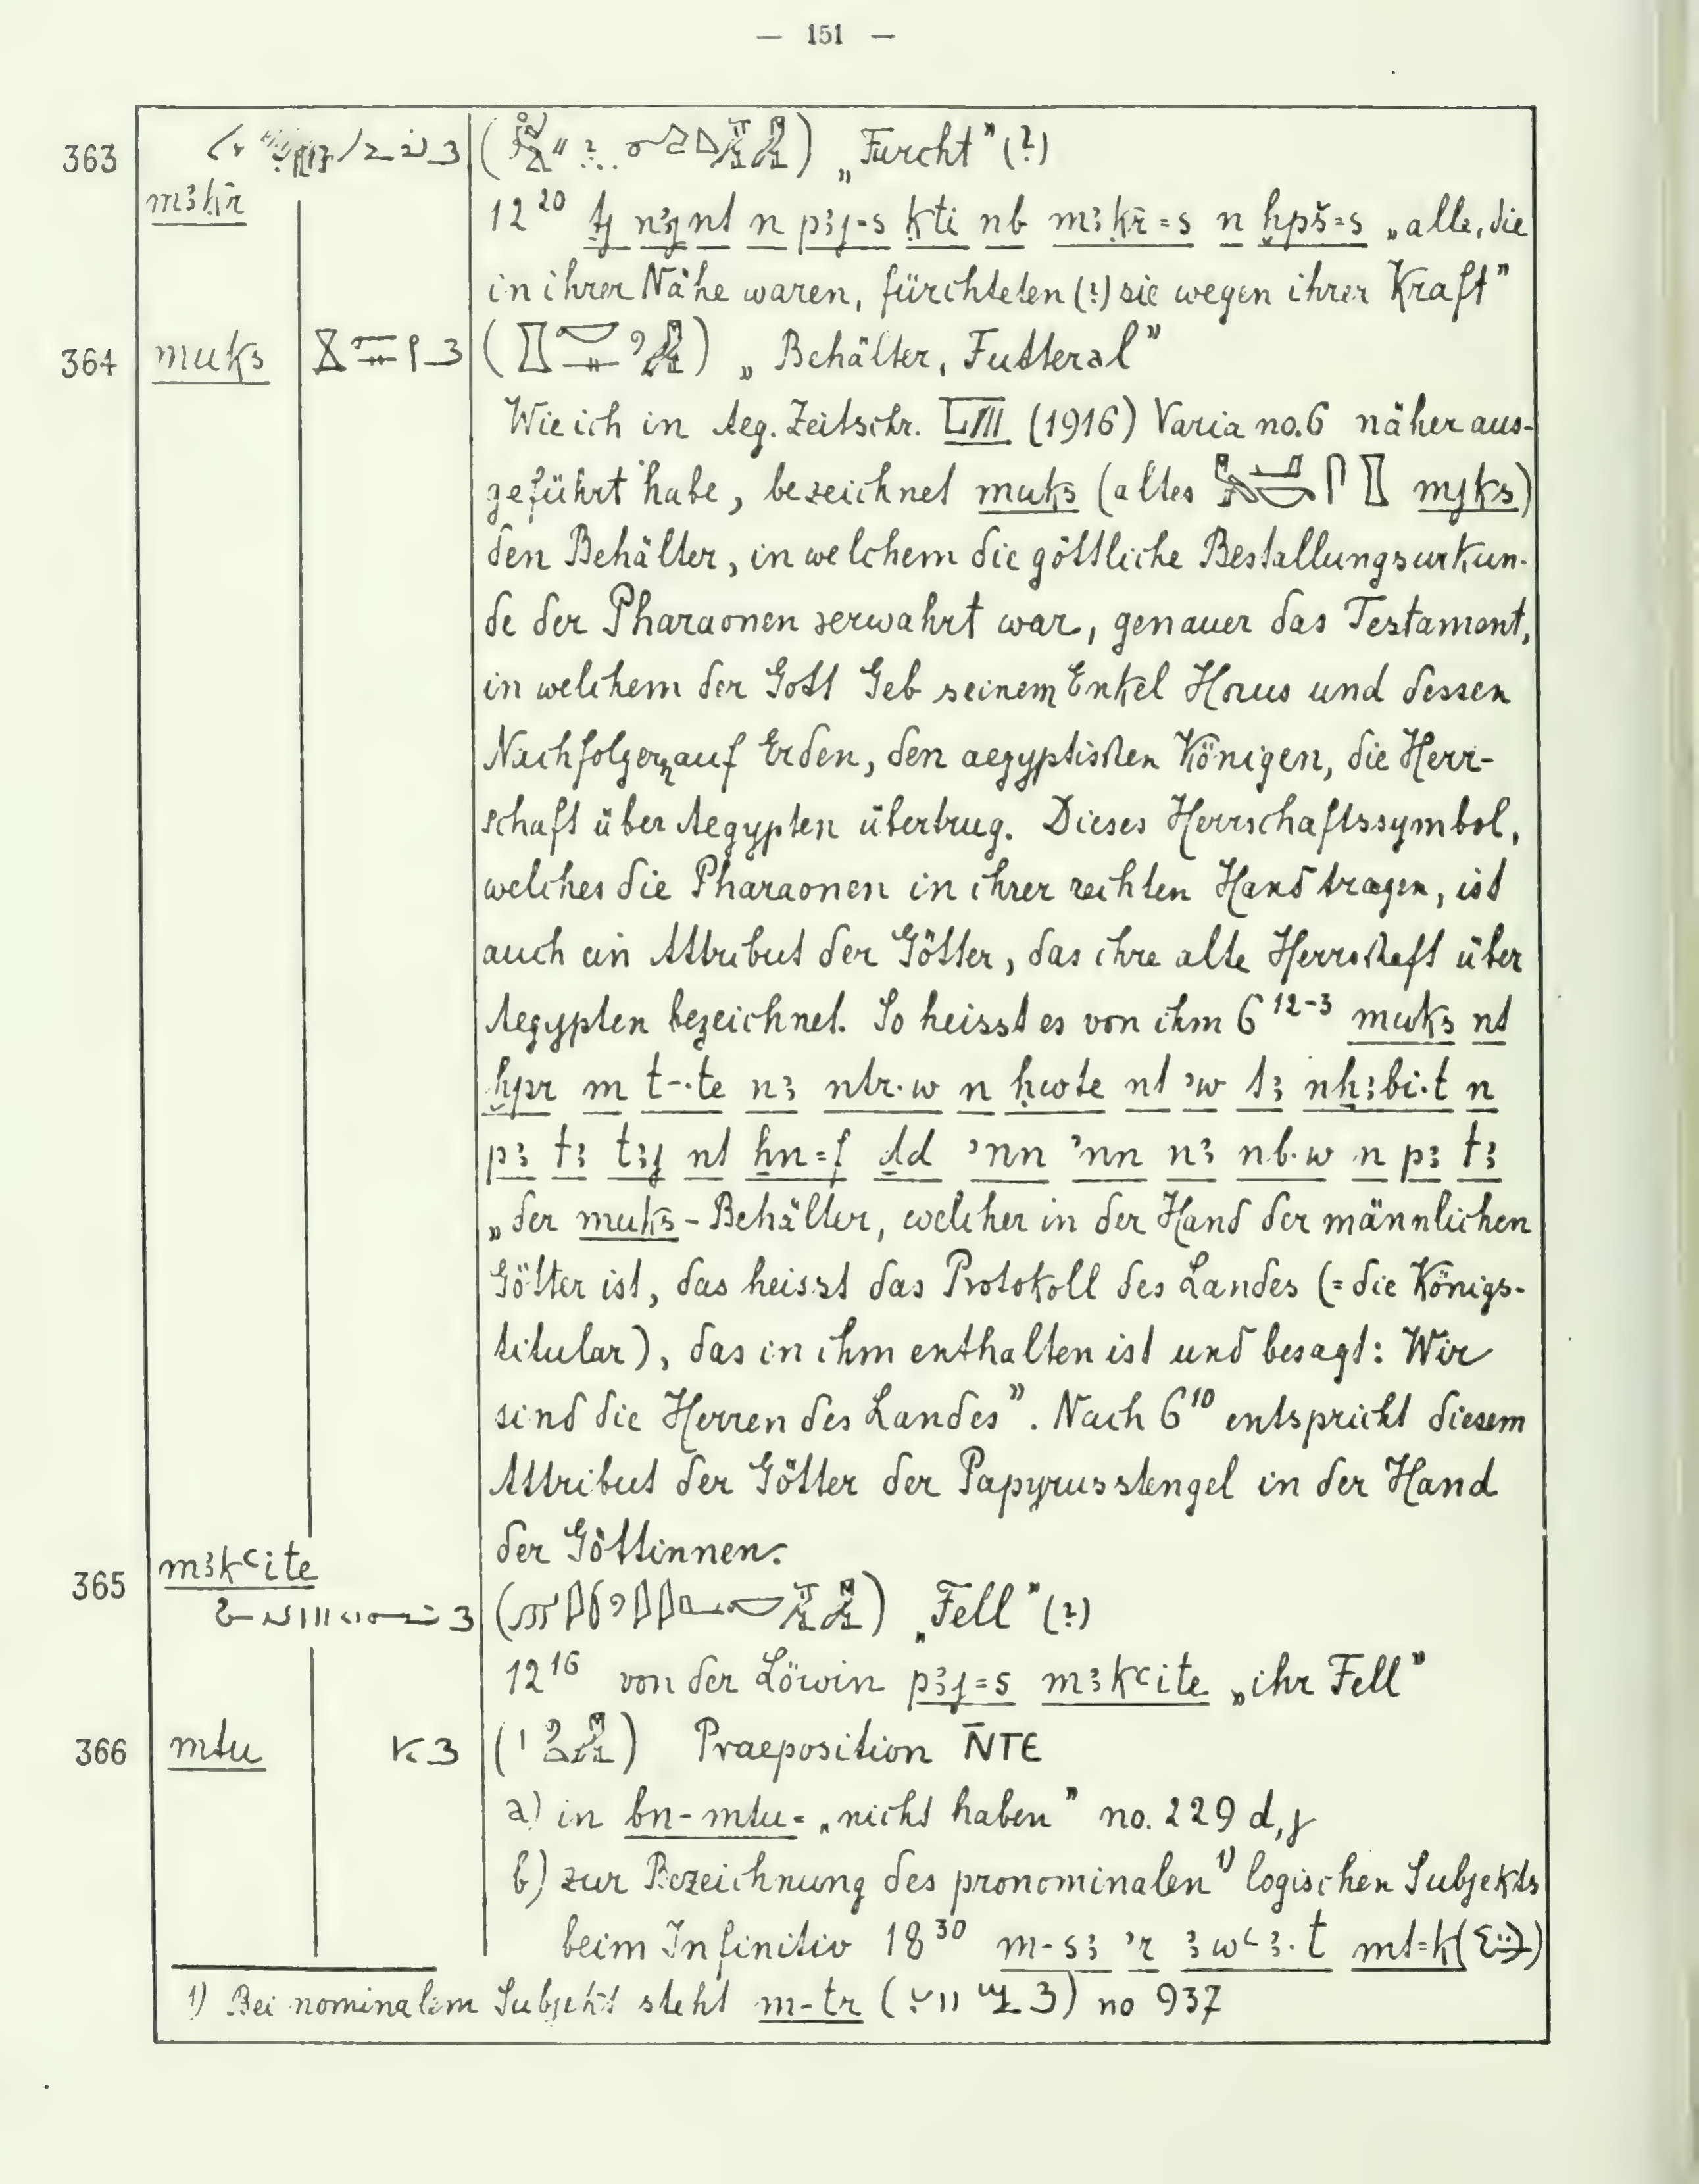 — 151 —
363 („Furcht" (?)
mꜣḳr̄
12²⁰ ṯj nꜣj nt n pꜣj=s ḳti nb mꜣḳr̄=s n ḫpš=s „alle, die
in ihrer Nähe waren, fürchteten (?) sie wegen ihrer Kraft"
364 muks „Behälter, Futteral"
Wie ich in Aeg. Zeitschr. LIII (1916) Varia no. 6 näher aus-
geführt habe, bezeichnet muks (altes mjks)
den Behälter, in welchem die göttliche Bestallungsurkun-
de der Pharaonen verwahrt war, genauer das Testament,
in welchem der Gott Geb seinem Enkel Horus und dessen
Nachfolgern auf Erden, den aegyptischen Königen, die Herr-
schaft über Aegypten übertrug. Dieses Herrschaftssymbol,
welches die Pharaonen in ihrer rechten Hand tragen, ist
auch ein Attribut der Götter, das ihre alte Herrschaft über
Aegypten bezeichnet. So heisst es von ihm 6¹²⁻³ muks nt
ḫpr m t-·te nꜣ ntr·w n ḥwte nt ʾw tꜣ nḫꜣbi·t n
pꜣ tꜣ tꜣj nt ẖn=f ḏd ʾnn ʾnn nꜣ nb·w n pꜣ tꜣ
„der muks-Behälter, welcher in der Hand der männlichen
Götter ist, das heisst das Protokoll des Landes (= die Königs-
titular), das in ihm enthalten ist und besagt: Wir
sind die Herren des Landes". Nach 6¹⁰ entspricht diesem
Attribut der Götter der Papyrusstengel in der Hand
der Göttinnen.
365 mꜣkꜥite
„Fell" (?)
12¹⁶ von der Löwin pꜣj=s mꜣkꜥite „ihr Fell"
366 mtu Praeposition N̄TE
a) in bn-mtu= „nicht haben" no. 229 d, j
b) zur Bezeichnung des pronominalen ¹⁾ logischen Subjekts
beim Infinitiv 18³⁰ m-sꜣ ʾr ꜣwꜥꜣ·t mt=k
1) Bei nominalem Subjekt steht m-tr no 937